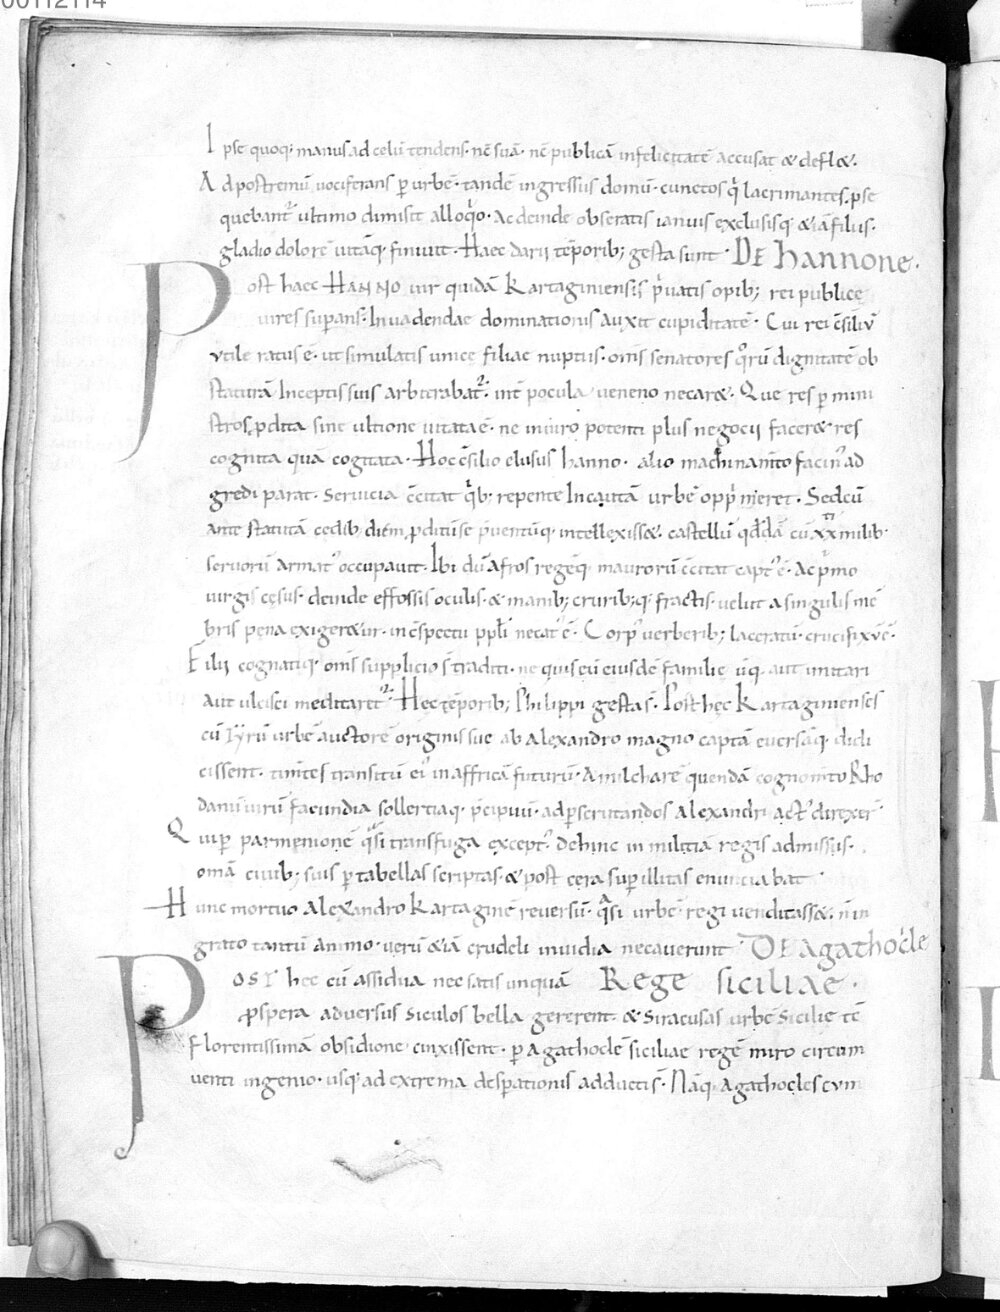 00112114
Ipse quoq; manus ad celū tendens. nc̄ suā. nc̄ publicā infelicitatē accusat & defl&.
Ad postremū uociferans p̱ urbē. tandē ingressus domū. cunctos q̇ lacrimantes ꝓse
quebant᷑ ultimo dimisit alloq̊o. Ac deinde obseratis ianuis exclusisq; &iā filiis.
gladio dolorē uitāq; finiuit. Haec darii tēporib; gesta sunt. DE hannone.
Post haec HANNO uir quidā Kartaginiensis p̓uatis opib; rei publice
uires sup̱ans. Inuadendae dominationis auxit cupiditatē. Cui rei c̄siliū
vtile ratus ē. ut simulatis unice filiae nuptiis. om̄s senatores q̊rū dignitatē ob
staturā Inceptis suis arbitrabat᷑. int̄ pocula ueneno necar&. Que res p̱ mini
stros ꝓdita sine ultione uitata ē. ne in uiro potenti plus negocii facer& res
cognita quā cogitata. Hoc c̄silio elusus hanno. alio machinam̄to facin᷒ ad
gredi parat. Seruicia c̄citat q̇b; repente Incautā urbē opp̓meret. Sed cū
ante statutā cedib; diem ꝓditū se p̓uentūq; intellexiss&. castellū qđdā cū xx milib;
ti
seruorū armat᷒ occupauit. Ibi dū afros regēq; maurorū c̄citat capt᷒ ē. Ac p̓mo
uirgis cęsus. deinde effossis oculis. & manib; cruribq; fractis. uelut a singulis mē
bris pena exiger&ur. in c̄spectu pp̄li necat᷒ ē. Corp᷒ uerberib; laceratū. crucifixū ē.
Filii cognatiq; om̄s supplicio s̄ traditi. ne quis eū eiusdē familie ūq. aut imitari
aut ulcisci meditaret᷑. Hec tēporib; Philippi gesta s̄. Post hęc Kartaginienses
cū Tyrū urbē auctorē originis sue ab alexandro magno captā euersāq; didi
cissent. tim̄tes transitū ei᷒ in affricā futurū. Amilcharē quendā cognom̄to Rho
danū uirū facundia sollertiaq; p̄cipuū. ad p̱scrutandos alexandri act᷒ direxer̄.
Qui p̱ parmenionē q̊si transfuga except᷒. dehinc in militiā regis admissus.
om̄ā ciuib; suis p̱ tabellas scriptas. & post cera sup̱ illitas enunciabat
Hunc mortuo alexandro Kartaginē reuersū. q̊si urbē regi uenditass&. n̄ in
grato tantū animo. uerū &iā crudeli inuidia necauerunt. DE agathocle
POST hec cū assidua nec satis unquā Rege siciliae.
ꝓspera aduersus siculos bella gererent. & siracusas urbē sicilie tc̄
florentissimā obsidione cinxissent. p̱ Agathoclē siciliae regē miro circum
uenti ingenio. usq; ad extrema desp̱ationis adducti s̄. Nāq; agathocles cum